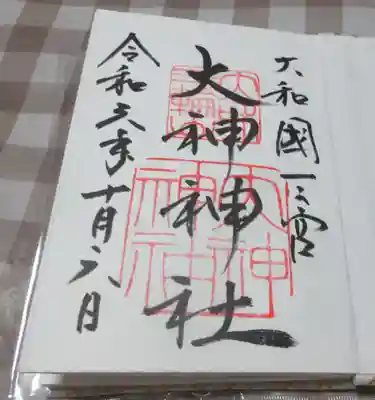 大和國一之宮
大神神社
大神神社
令和六年十月六日